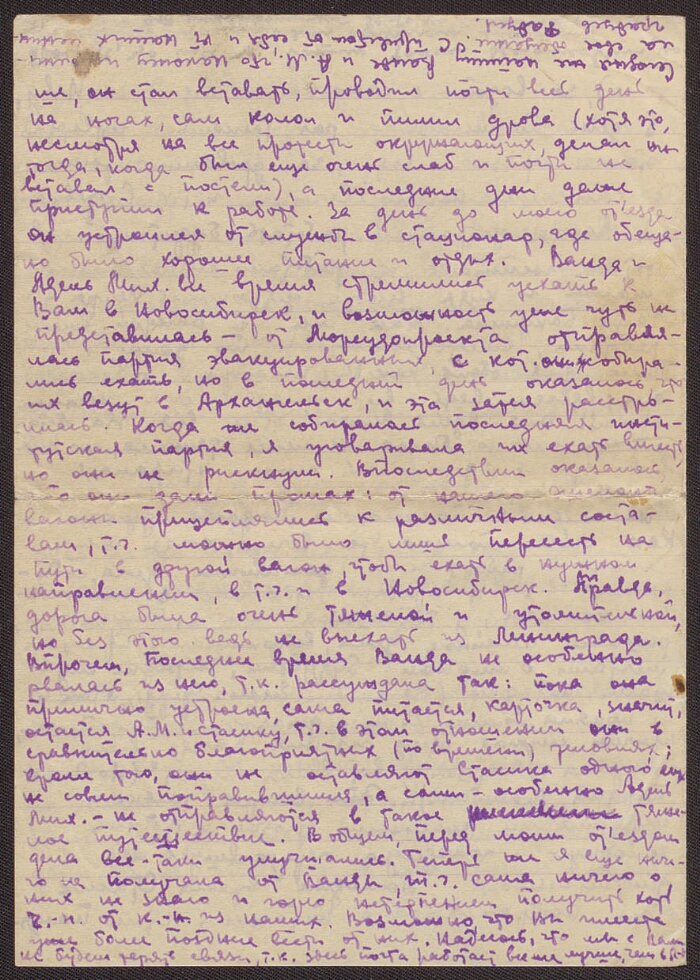 ше, он стал вставать, проводил почти весь день
на ногах, сам колол и пилил дрова (хотя это,
несмотря на все протесты окружающих, делал он
тогда, когда был еще очень слаб и почти не
вставал с постели), а последние дни даже
приступил к работе. За день до моего отъезда
он устроился от службы в стационар, где обеща-
но было хорошее питание и отдых. Ванда и
Адель Мих. все время стремились уехать к
Вам в Новосибирск, и возможность уже чуть не
представилась – от Морсудопроекта отправля-
лась партия эвакуированных, с кот. они собира-
лись ехать, но в последний день оказалось, что
их везут в Архангельск, и эта затея расстро-
илась. Когда же собиралась последняя инсти-
тутская партия, я уговаривала их ехать вместе,
но они не рискнули. Впоследствии оказалось,
что они дали промах: от нашего эшелона
вагоны прицеплялись к различным соста-
вам, т.ч. можно было лишь пересесть на
пути в другой вагон, чтобы ехать в нужном
направлении, в т.ч. и в Новосибирск. Правда,
дорога была очень тяжелой и утомительной,
но без этого ведь не выехать из Ленинграда.
Впрочем, последнее время Ванда не особенно
рвалась из него, т.к. рассуждала так: пока она
прилично устроена, сама питается, карточка, значит,
остается А.М. и Стасику, т.ч. в этом отношении они в
сравнительно благоприятных (по времени) условиях;
кроме того, они не оставляют Стасика одного еще
не совсем поправившимся, а сами – особенно Адель
Мих. – не отправляются в такое тяже-
лое путешествие. В общем, перед моим отъездом
дела все-таки улучшались. Теперь же я еще ниче-
го не получала от Ванды, т.ч. сама ничего о
них не знаю и горю нетерпением получить хоть
ч.-н. от к.-н. из наших. Возможно, что Вы имеете
уже более поздние вести от них. Надеюсь, что мы с Вами
не будем терять связи, т.к. здесь почта работает все же лучше, чем в